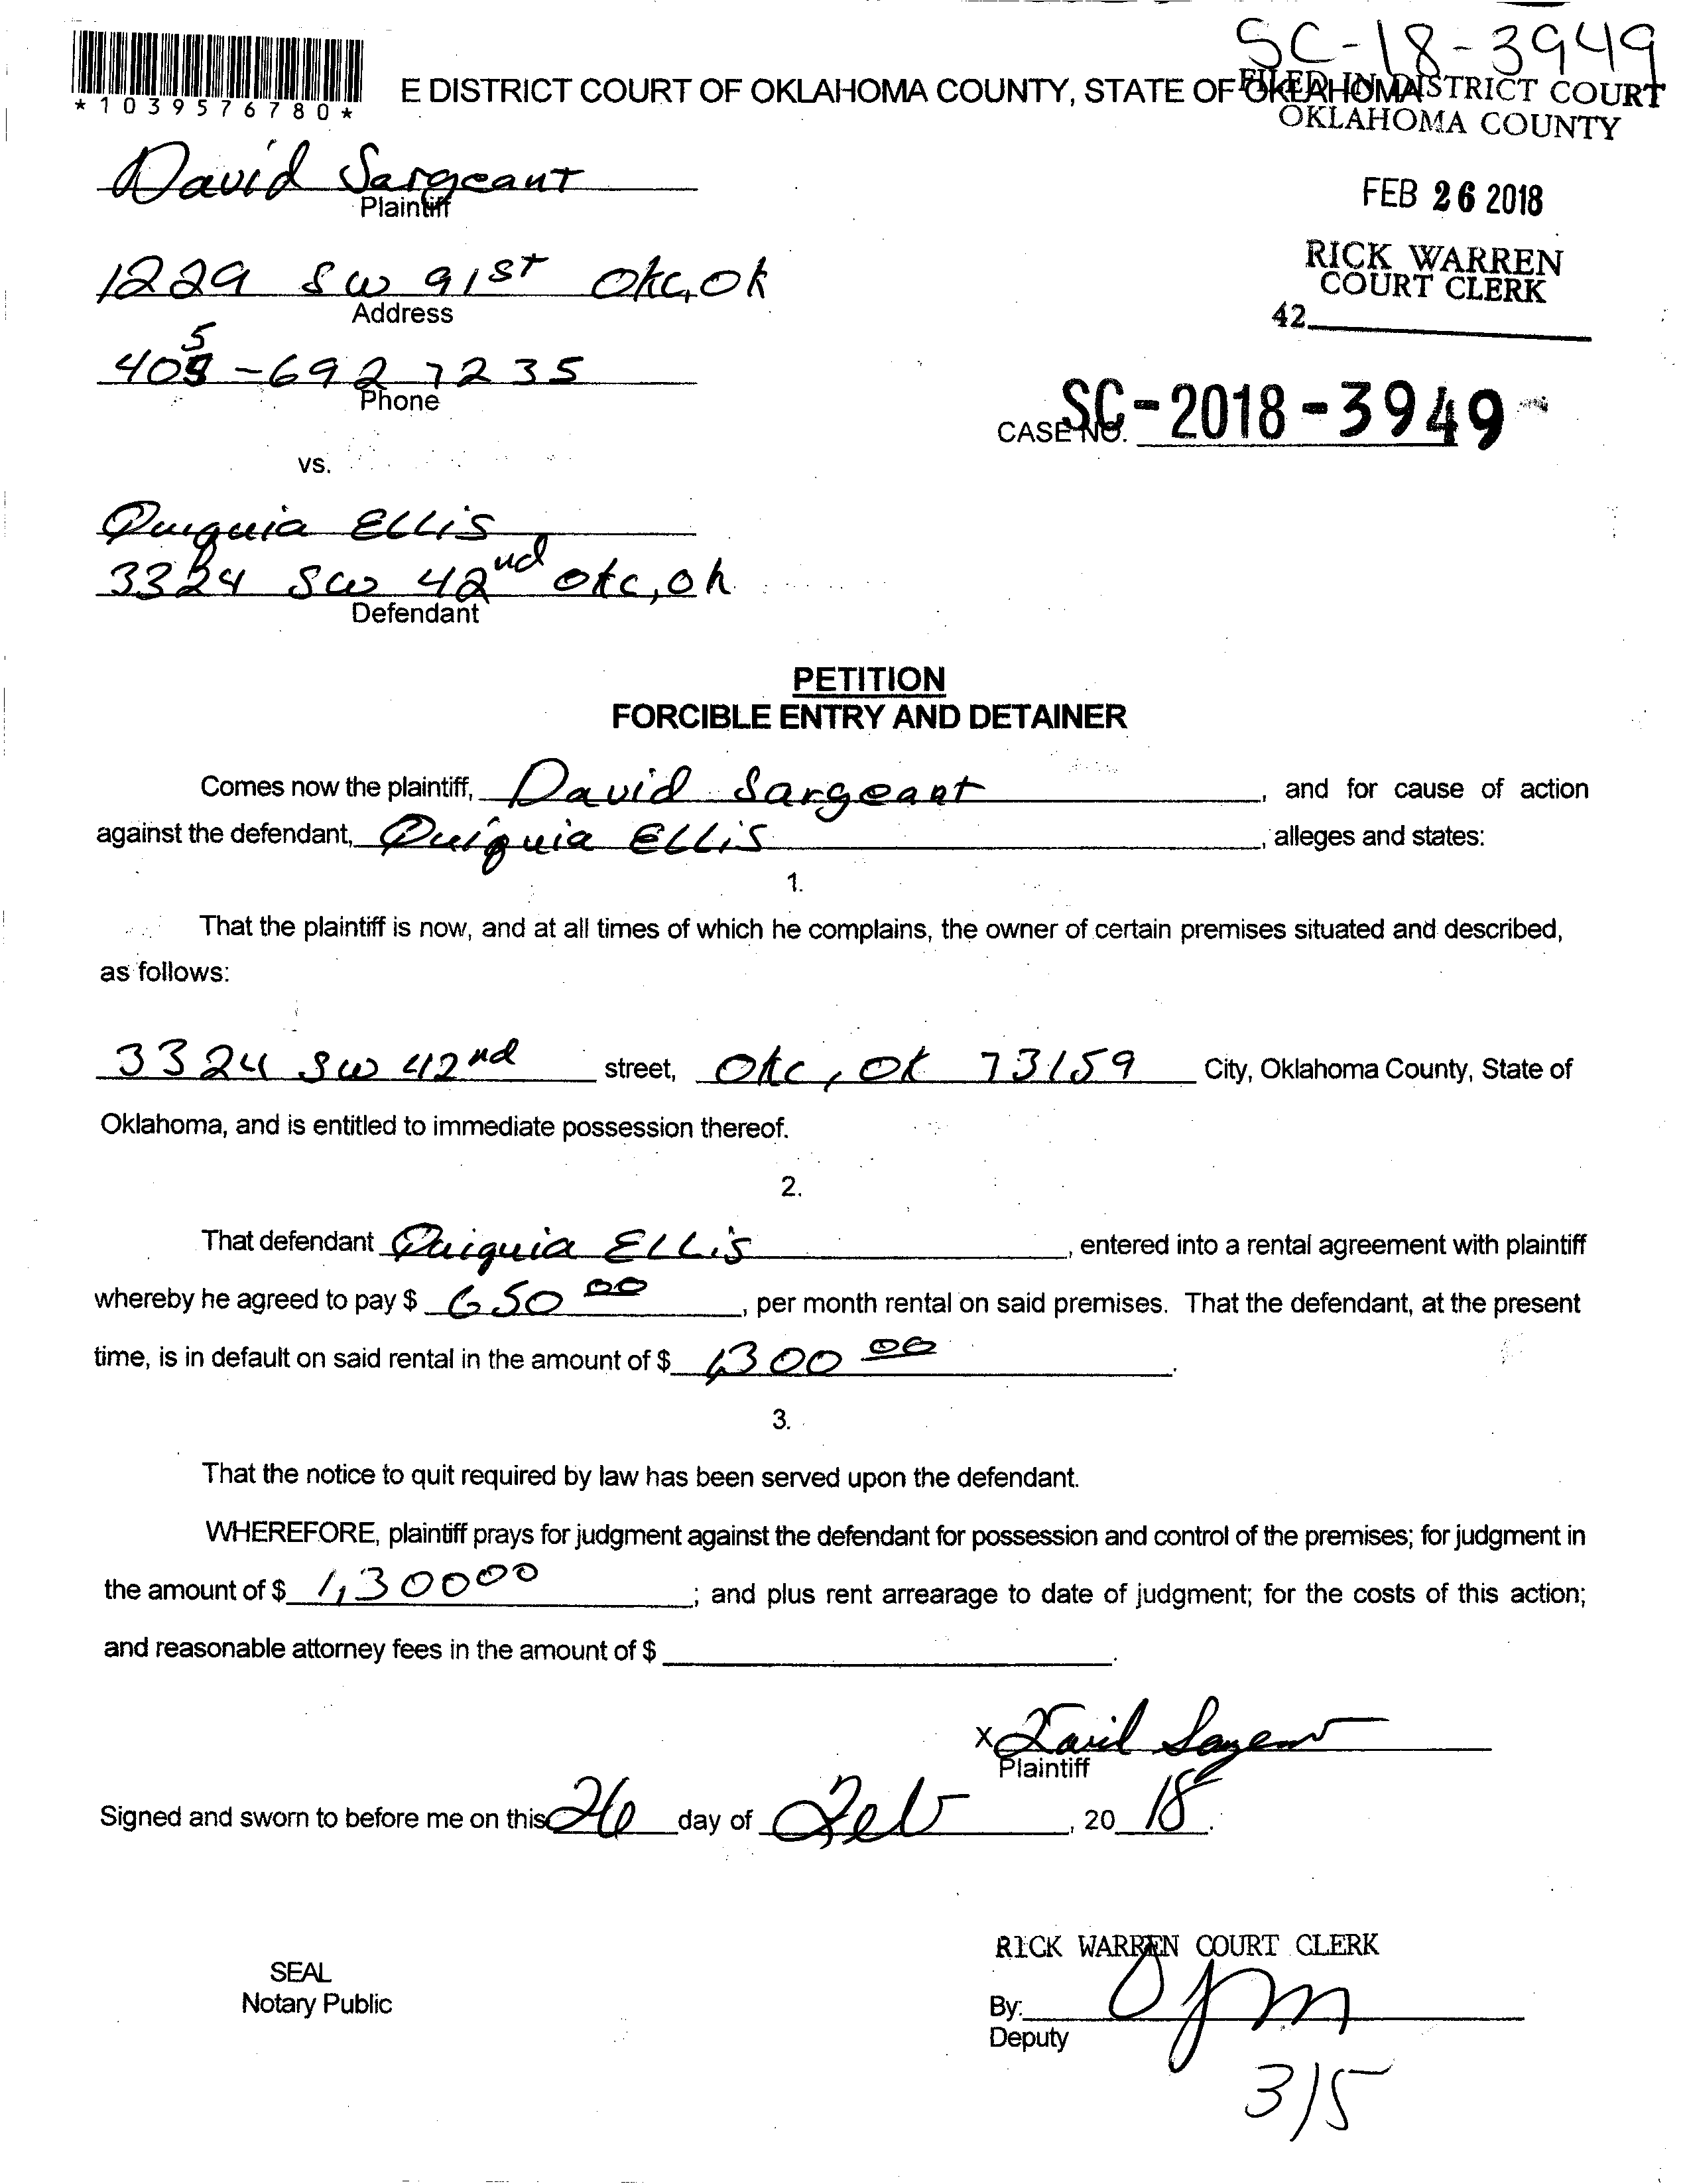 SC-18-3949
*1039576780*
E DISTRICT COURT OF OKLAHOMA COUNTY, STATE OF OKLAHOMA
FILED IN DISTRICT COURT
OKLAHOMA COUNTY
David Sargeant
Plaintiff
FEB 26 2018
1229 SW 91st OKC, OK
Address
RICK WARREN
COURT CLERK
42
405-692 7235
Phone
CASE NO. SC-2018-3949
vs.
Quiquia ELLiS
3324 SW 42nd OKC, OK
Defendant
PETITION
FORCIBLE ENTRY AND DETAINER
Comes now the plaintiff, David Sargeant, and for cause of action
against the defendant, Quiquia ELLiS, alleges and states:
1.
That the plaintiff is now, and at all times of which he complains, the owner of certain premises situated and described,
as follows:
3324 SW 42nd street, OKC, OK 73159 City, Oklahoma County, State of
Oklahoma, and is entitled to immediate possession thereof.
2.
That defendant Quiquia ELLiS, entered into a rental agreement with plaintiff
whereby he agreed to pay $ 650 00, per month rental on said premises. That the defendant, at the present
time, is in default on said rental in the amount of $ 1,300 00.
3.
That the notice to quit required by law has been served upon the defendant.
WHEREFORE, plaintiff prays for judgment against the defendant for possession and control of the premises; for judgment in
the amount of $ 1,300 00; and plus rent arrearage to date of judgment; for the costs of this action;
and reasonable attorney fees in the amount of $ .
X David Sargeant
Plaintiff
Signed and sworn to before me on this 26 day of Feb, 20 18.
RICK WARREN COURT CLERK
SEAL
Notary Public
By:
Deputy
3/5